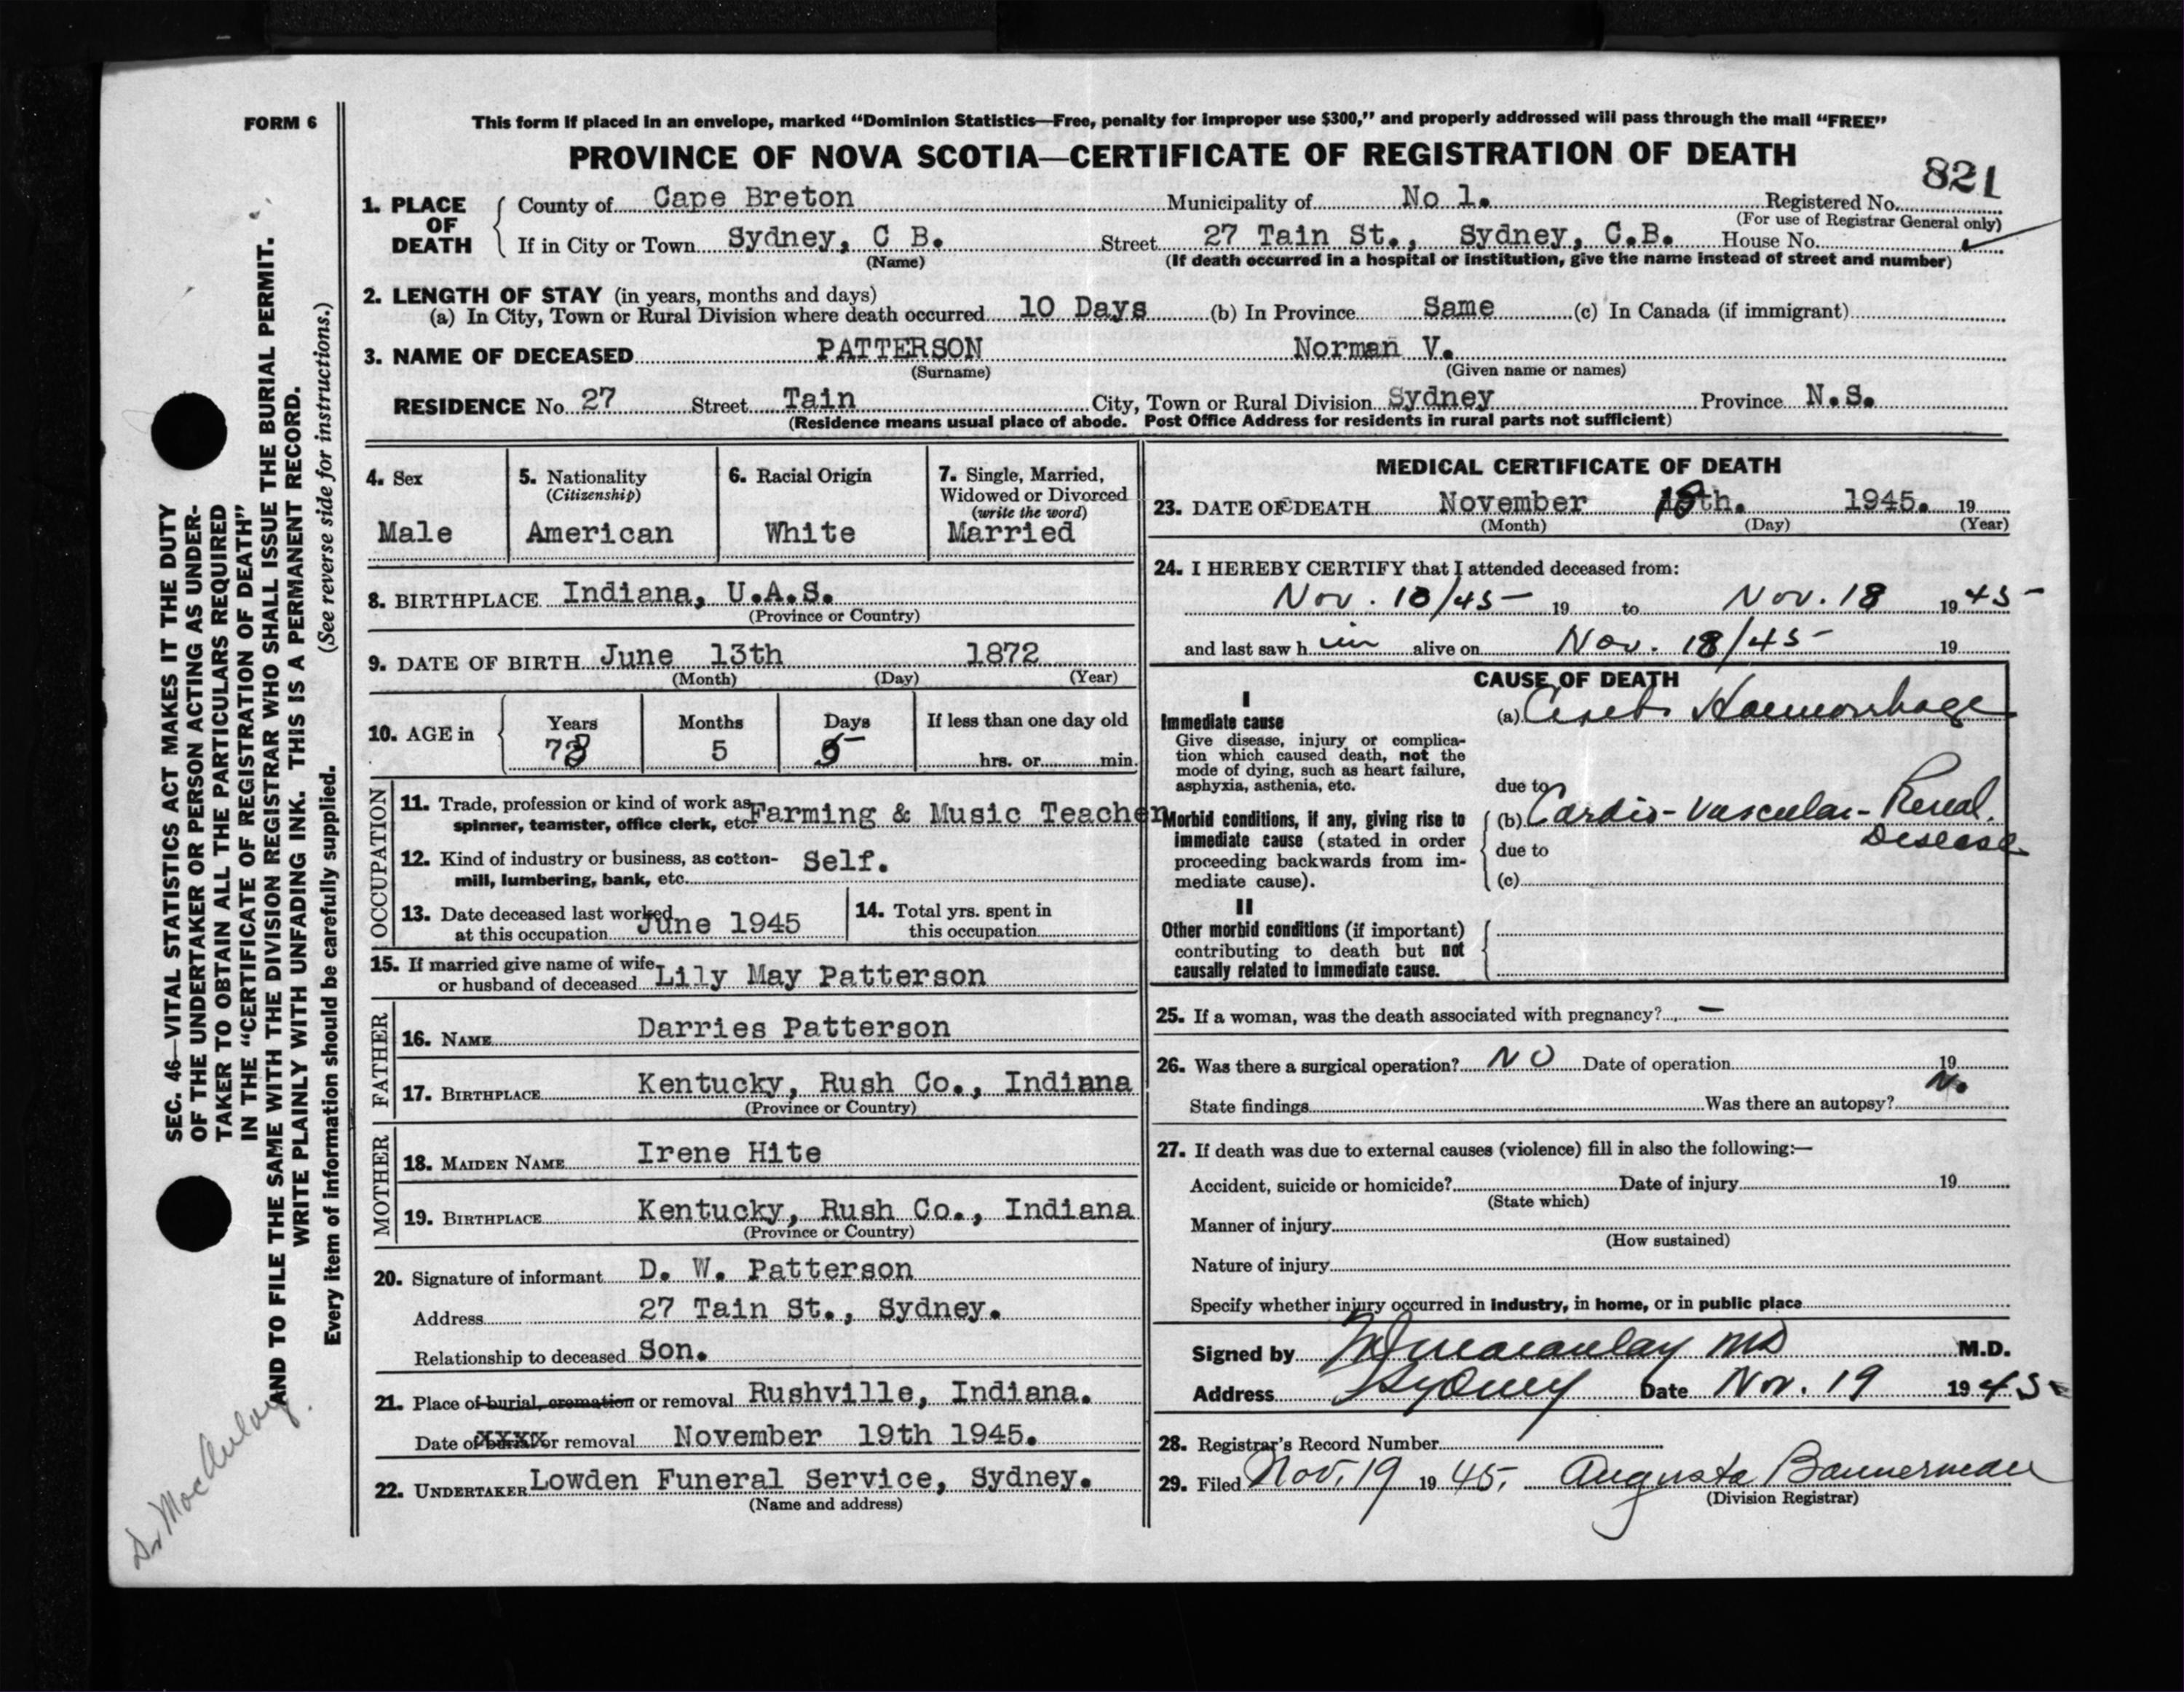 FORM 6
This form if placed in an envelope, marked “Dominion Statistics—Free, penalty for improper use $300,” and properly addressed will pass through the mail “FREE”
PROVINCE OF NOVA SCOTIA—CERTIFICATE OF REGISTRATION OF DEATH
821
1. PLACE OF DEATH
County of Cape Breton Municipality of No 1. Registered No.
(For use of Registrar General only)
If in City or Town Sydney, C B. Street 27 Tain St., Sydney, C.B. House No.
(Name) (If death occurred in a hospital or institution, give the name instead of street and number)
2. LENGTH OF STAY (in years, months and days)
(a) In City, Town or Rural Division where death occurred 10 Days (b) In Province Same (c) In Canada (if immigrant)
3. NAME OF DECEASED PATTERSON Norman V.
(Surname) (Given name or names)
RESIDENCE No. 27 Street Tain City, Town or Rural Division Sydney Province N.S.
(Residence means usual place of abode. Post Office Address for residents in rural parts not sufficient)
4. Sex
Male
5. Nationality
(Citizenship)
American
6. Racial Origin
White
7. Single, Married,
Widowed or Divorced
(write the word)
Married
8. BIRTHPLACE Indiana, U.A.S.
(Province or Country)
9. DATE OF BIRTH June 13th 1872
(Month) (Day) (Year)
10. AGE in
Years Months Days If less than one day old
73 5 5 hrs. or min.
OCCUPATION
11. Trade, profession or kind of work as
spinner, teamster, office clerk, etc. Farming & Music Teacher
12. Kind of industry or business, as cotton-
mill, lumbering, bank, etc. Self.
13. Date deceased last worked
at this occupation June 1945
14. Total yrs. spent in
this occupation
15. If married give name of wife
or husband of deceased Lily May Patterson
FATHER
16. NAME Darries Patterson
17. BIRTHPLACE Kentucky, Rush Co., Indiana
(Province or Country)
MOTHER
18. MAIDEN NAME Irene Hite
19. BIRTHPLACE Kentucky, Rush Co., Indiana
(Province or Country)
20. Signature of informant D. W. Patterson
Address 27 Tain St., Sydney.
Relationship to deceased Son.
21. Place of burial, cremation or removal Rushville, Indiana.
Date of burial or removal November 19th 1945.
22. UNDERTAKER Lowden Funeral Service, Sydney.
(Name and address)
MEDICAL CERTIFICATE OF DEATH
23. DATE OF DEATH November 18th. 1945. 19
(Month) (Day) (Year)
24. I HEREBY CERTIFY that I attended deceased from:
Nov. 10/45 19 to Nov. 18 1945
and last saw h im alive on Nov. 18/45 19
CAUSE OF DEATH
I
Immediate cause
Give disease, injury or complica-
tion which caused death, not the
mode of dying, such as heart failure,
asphyxia, asthenia, etc.
(a) Haemorrhage
due to
Morbid conditions, if any, giving rise to
immediate cause (stated in order
proceeding backwards from im-
mediate cause).
(b) Cardio-Vascular-Renal.
Disease
due to
(c)
II
Other morbid conditions (if important)
contributing to death but not
causally related to immediate cause.
25. If a woman, was the death associated with pregnancy? —
26. Was there a surgical operation? NO Date of operation 19
State findings Was there an autopsy? No
27. If death was due to external causes (violence) fill in also the following:—
Accident, suicide or homicide? Date of injury 19
(State which)
Manner of injury
(How sustained)
Nature of injury
Specify whether injury occurred in industry, in home, or in public place
Signed by Macaulay MD M.D.
Address Sydney Date Nov. 19 1945
28. Registrar's Record Number
29. Filed Nov. 19 1945. Augusta Bannerman
(Division Registrar)
SEC. 46—VITAL STATISTICS ACT MAKES IT THE DUTY
OF THE UNDERTAKER OR PERSON ACTING AS UNDER-
TAKER TO OBTAIN ALL THE PARTICULARS REQUIRED
IN THE “CERTIFICATE OF REGISTRATION OF DEATH”
AND TO FILE THE SAME WITH THE DIVISION REGISTRAR WHO SHALL ISSUE THE BURIAL PERMIT.
WRITE PLAINLY WITH UNFADING INK. THIS IS A PERMANENT RECORD.
Every item of information should be carefully supplied. (See reverse side for instructions.)